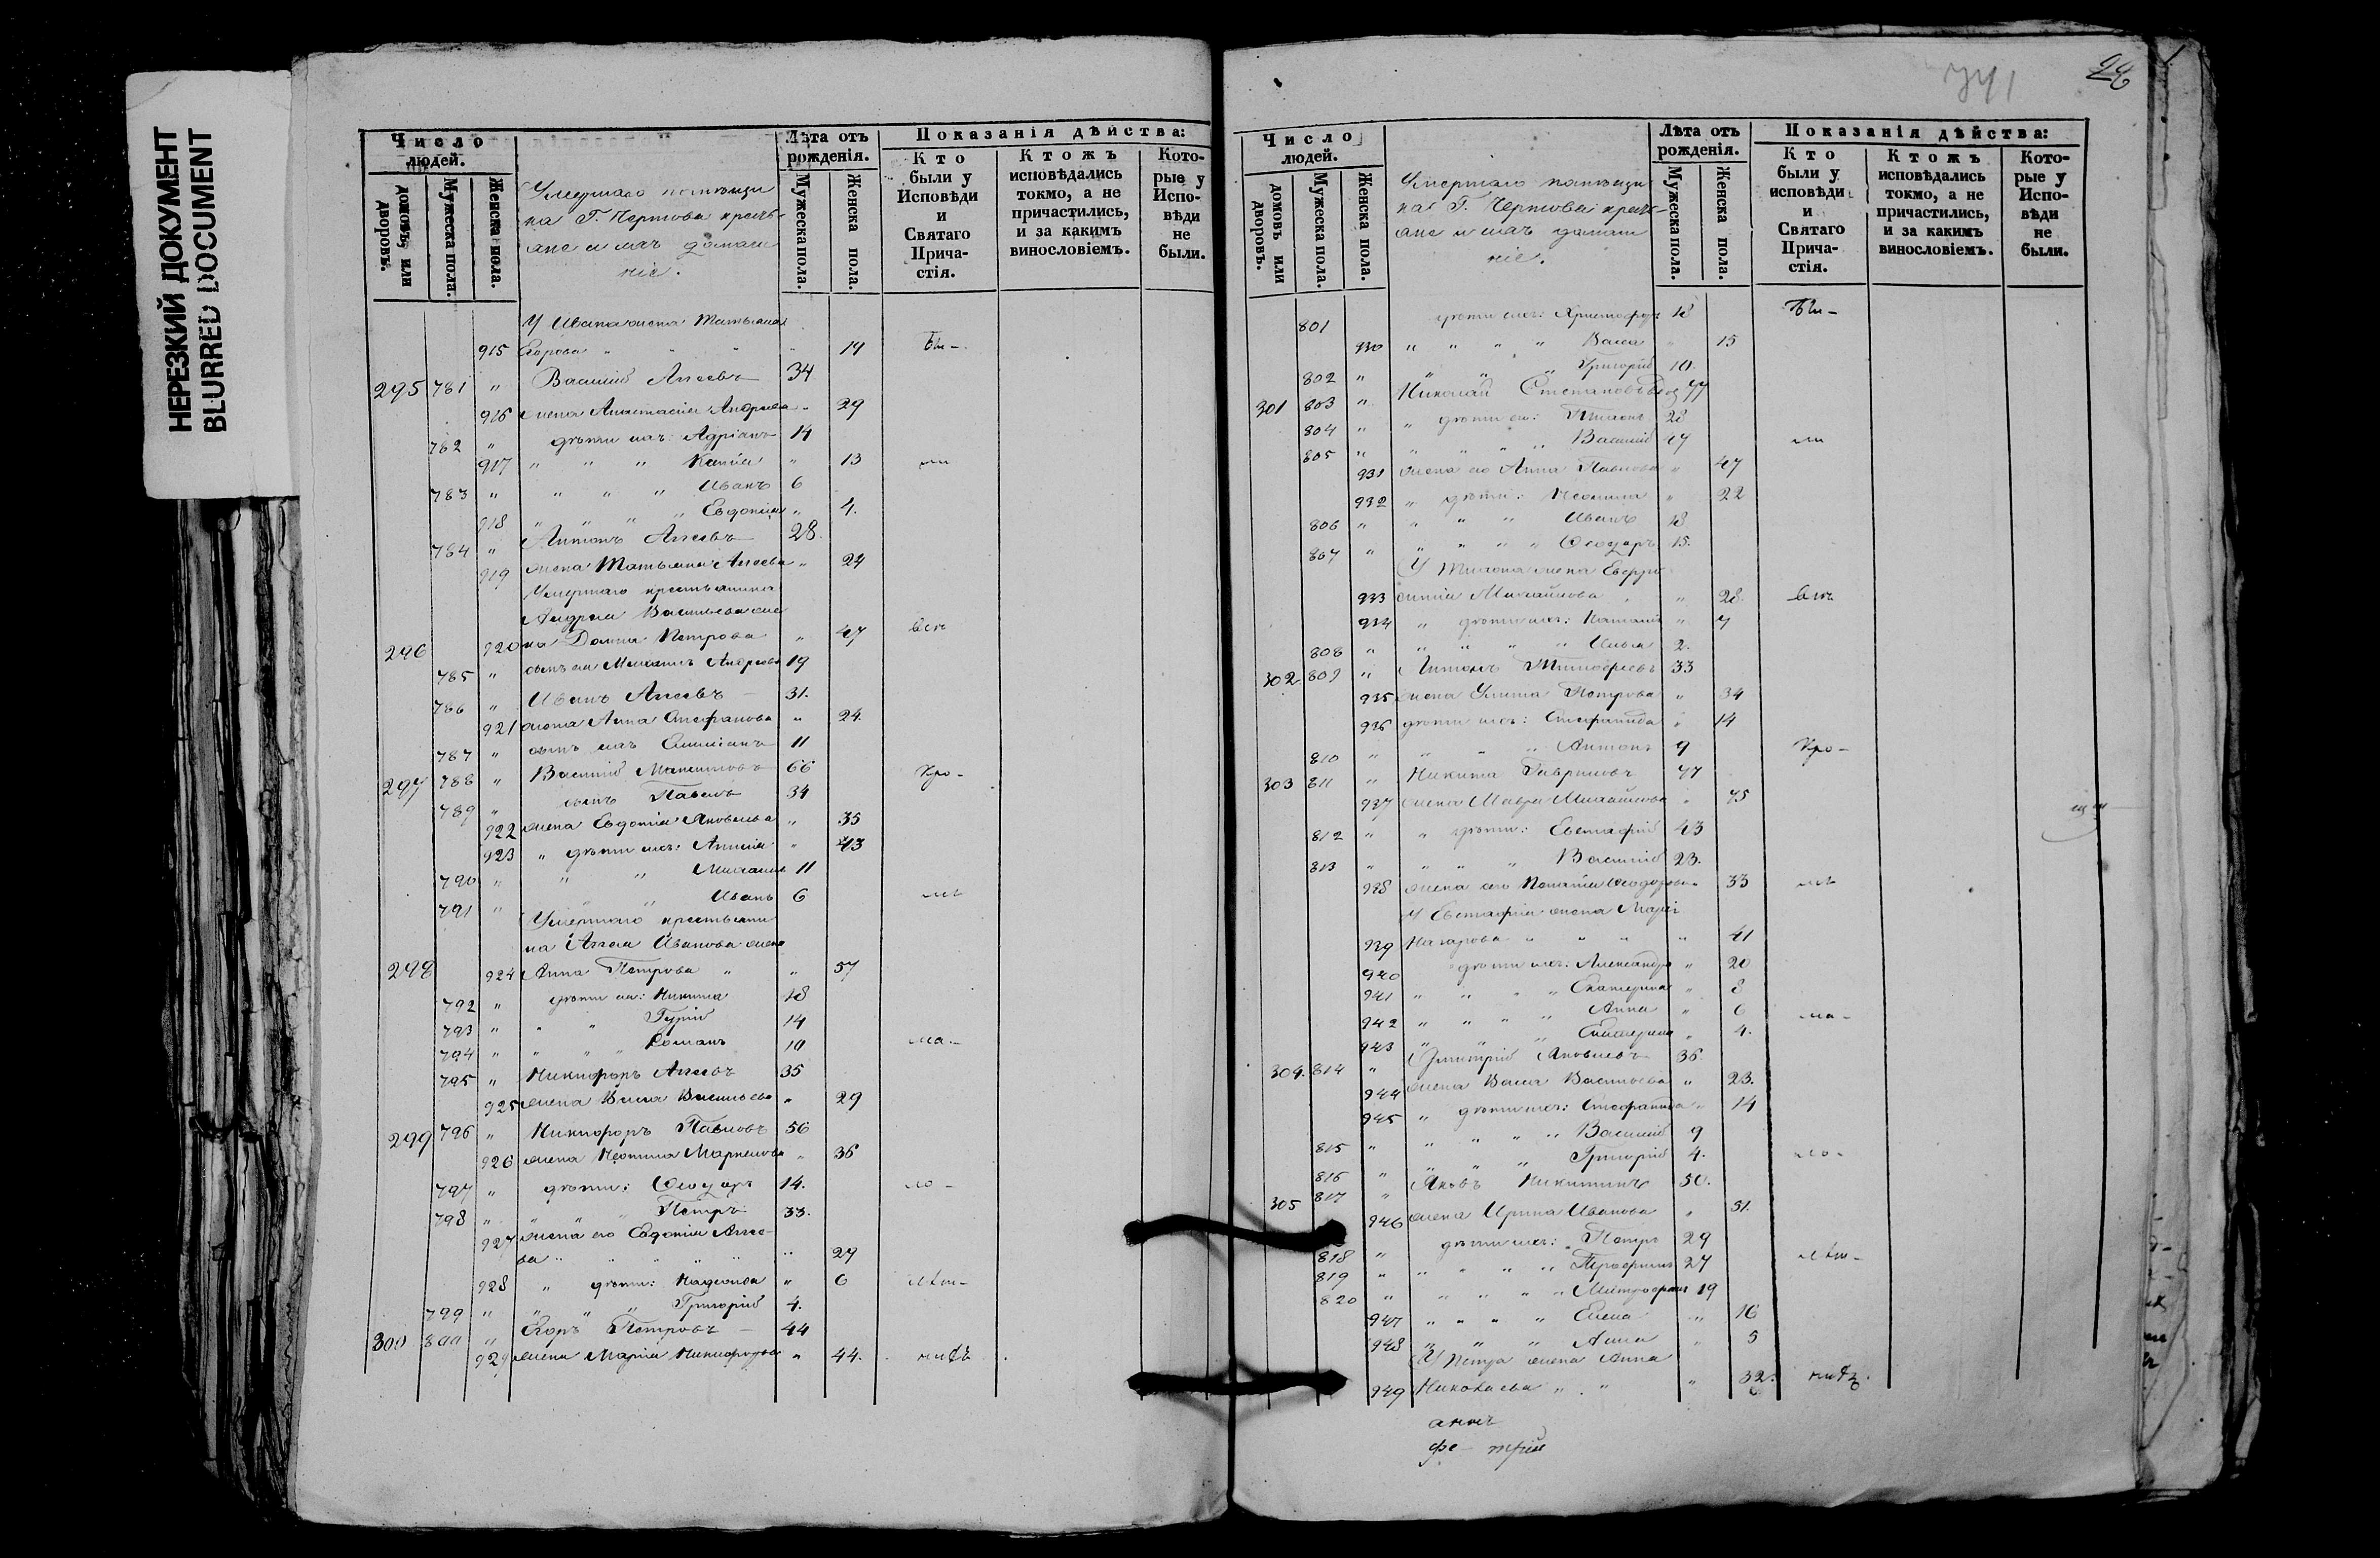 НЕРЕЗКИЙ ДОКУМЕНТ
BLURRED DOCUMENT
Число людей.
домовъ или дворовъ.
Мужеска пола.
Женска пола.
Умершаго помѣщи
ка Г. Чертова кресть-
яне и ихъ домаш
ніе.
Лѣта отъ рожденія.
Мужеска пола.
Женска пола.
Показанія дѣйства:
Кто были у Исповѣди и Святаго Прича-стія.
Ктожъ исповѣдались токмо, а не причастились, и за какимъ винословіемъ.
Кото-рые у Испо-вѣди не были.
У Ивана жена Татьяна
915 Егорова " 19 Бы-
295 781 " Василій Агеевъ 34
916 жена Анастасія Андреева " 29
782 " дѣти ихъ: Адріанъ 14
917 " " " " 13 ли
783 " " " " Иванъ 6
918 " " " " Евдокія " 4.
784 " Антонъ Агеевъ 28
919 жена Татьяна Агеева " 24
Умершаго крестьянина
Андрея Васильева же
296 920 на Домна Петрова " 47 всѣ
785 " сынъ ея Михаилъ Андреевъ 19
786 " Иванъ Агеевъ 31.
921 жена Анна Стефанова " 24.
787 " сынъ ихъ 11
297 788 " Василій Максимовъ 66 Кро-
789 " сынъ Павелъ 34
922 жена Евдокія Яковлева " 35
923 " дѣти ихъ: Аннія " 13
790 " " " Михаилъ 11
791 " " " Иванъ 6 мѣ
Умершаго крестьяни
на Агея Иванова жена
298 924 Анна Петрова " " 57
792 " дѣти ея: Никита 18
793 " " " Гурій 14
794 " " " " Романъ 10 ма-
795 " Никифоръ Агеевъ 35
925 жена Васса Васильева " 29
299 796 " Никифоръ Павловъ 56
926 жена Неонила Маркелова " 36
797 " дѣти: Ѳеодоръ 14. ло-
798 " " " " Петръ 33.
927 жена его Евдокія Агее-
ва " " " " " 29
928 " дѣти: Надежда " 6 лѣт-
799 " " " " Григорій 4.
300 800 " Егоръ Петровъ 44
929 жена Марія Никифорова " 44. нихъ
741
Число людей.
домовъ или дворовъ.
Мужеска пола.
Женска пола.
Умершаго помѣщи
ка Г. Чертова кресть-
яне и ихъ домаш
ніе.
Лѣта отъ рожденія.
Мужеска пола.
Женска пола.
Показанія дѣйства:
Кто были у исповѣди и Святаго Прича-стія.
Ктожъ исповѣдались токмо, а не причастились, и за какимъ винословіемъ.
Кото-рые у Испо-вѣди не были.
801 дѣти ихъ: Христофоръ 18 Бы-
930 " " " " Васса " 15
802 " " " " Григорій 10.
301 803 " Николай Степановъ 77
804 " " дѣти его: 28
805 " " " " " Василій 47 ли
931 жена его Анна Павлова " 47
932 " дѣти: Неонила " 22
806 " " " " Иванъ 18
807 " " " " " Ѳеодоръ 15.
933 синія Михайлова " " 28. всѣ
934 " дѣти ихъ: Наталія " 7
808 " " " " " Илья 2.
302. 809 " Антонъ Тимофеевъ 33
935 жена Улита Петрова " 34
936 дѣти ихъ: Стефанида " 14
810 " " " " Антонъ 9 Кро-
303 811 " Никита Гавриловъ 77
937 жена Мавра Михайлова " 75
812 " " дѣти: Евстафій 43
813 " " " " Василій 23.
938 жена его Наталія Ѳеодорова 33 мѣ
У Евстафія жена Марія
939 Назарова " " " " 41
940 дѣти ихъ: Александра " 20
941 " " " " Екатерина " 8
942 " " " " Анна " 6 ма-
943 " " " " 4.
304. 814 " Дмитрій Яковлевъ 36.
944 жена Васса Васильева " 23.
945 " дѣти ихъ: Стефанида " 14
815 " " " " " Василій 9
816 " " " " Григорій 4. ло-
305 817 " Яковъ Никитинъ 50.
946 жена Ирина Иванова " 51.
818 " дѣти ихъ: Петръ 29
819 " " " " " 27 лѣт-
820 " " " " " Митрофанъ 19
947 " " " " Елена " 16
948 " " " " Анна " 5
У Петра жена Анна
949 Николаева " " " 32. нихъ.